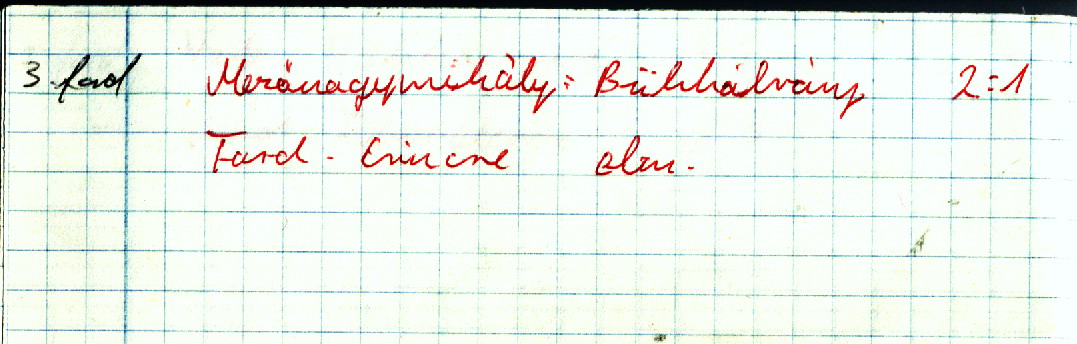 3 ford Mezőnagymihály: Bükkábrány 2:1
Tard - Emőd elm.